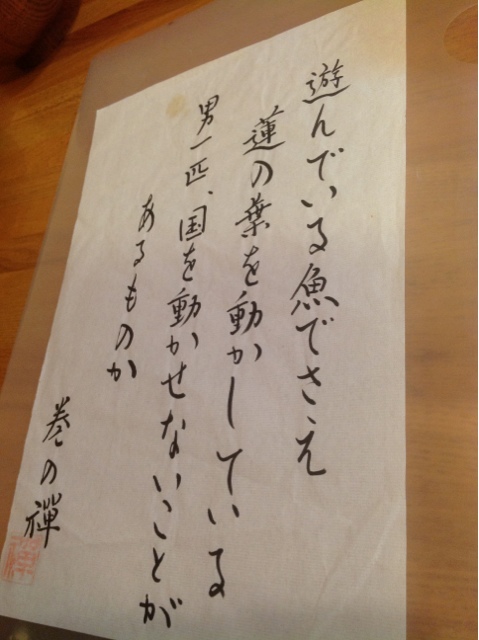 遊んでいる魚でさえ
蓮の葉を動かしている
男一匹、国を動かせないことが
あるものか
巻の禅